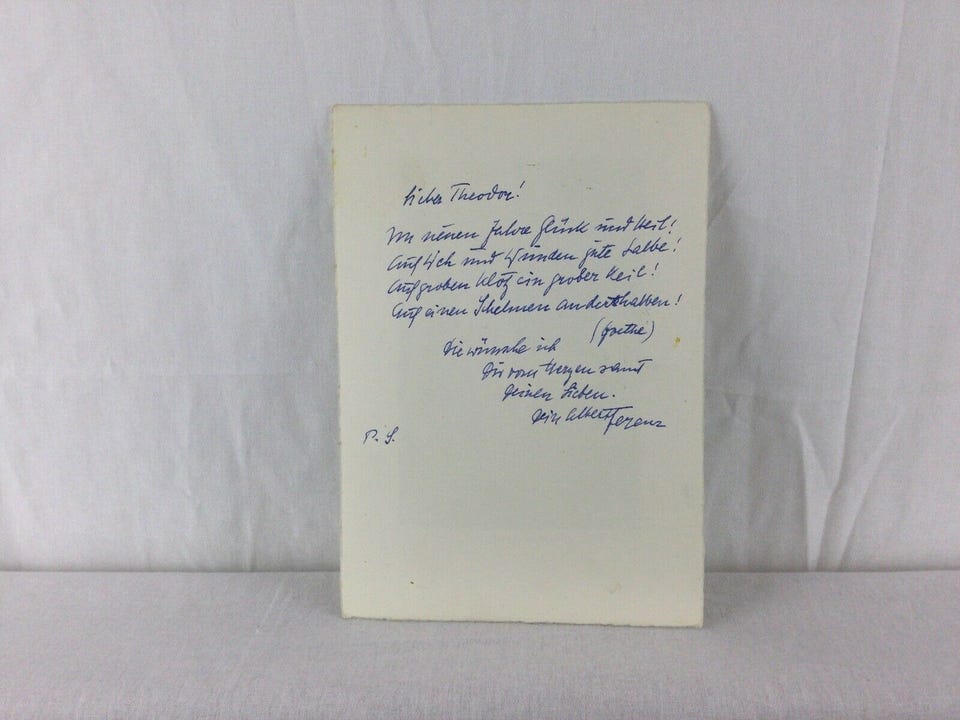 Lieber Theodor!
Im neuen Jahre Glück und Heil!
Auf Weh und Wunden gute Salbe!
Auf groben Klotz ein grober Keil!
Auf einen Schelmen anderthalben!
(Goethe)
Die wünsche ich
Dir vom Herzen samt
Deinen Lieben.
Dein Albert Ferenz
P. S.